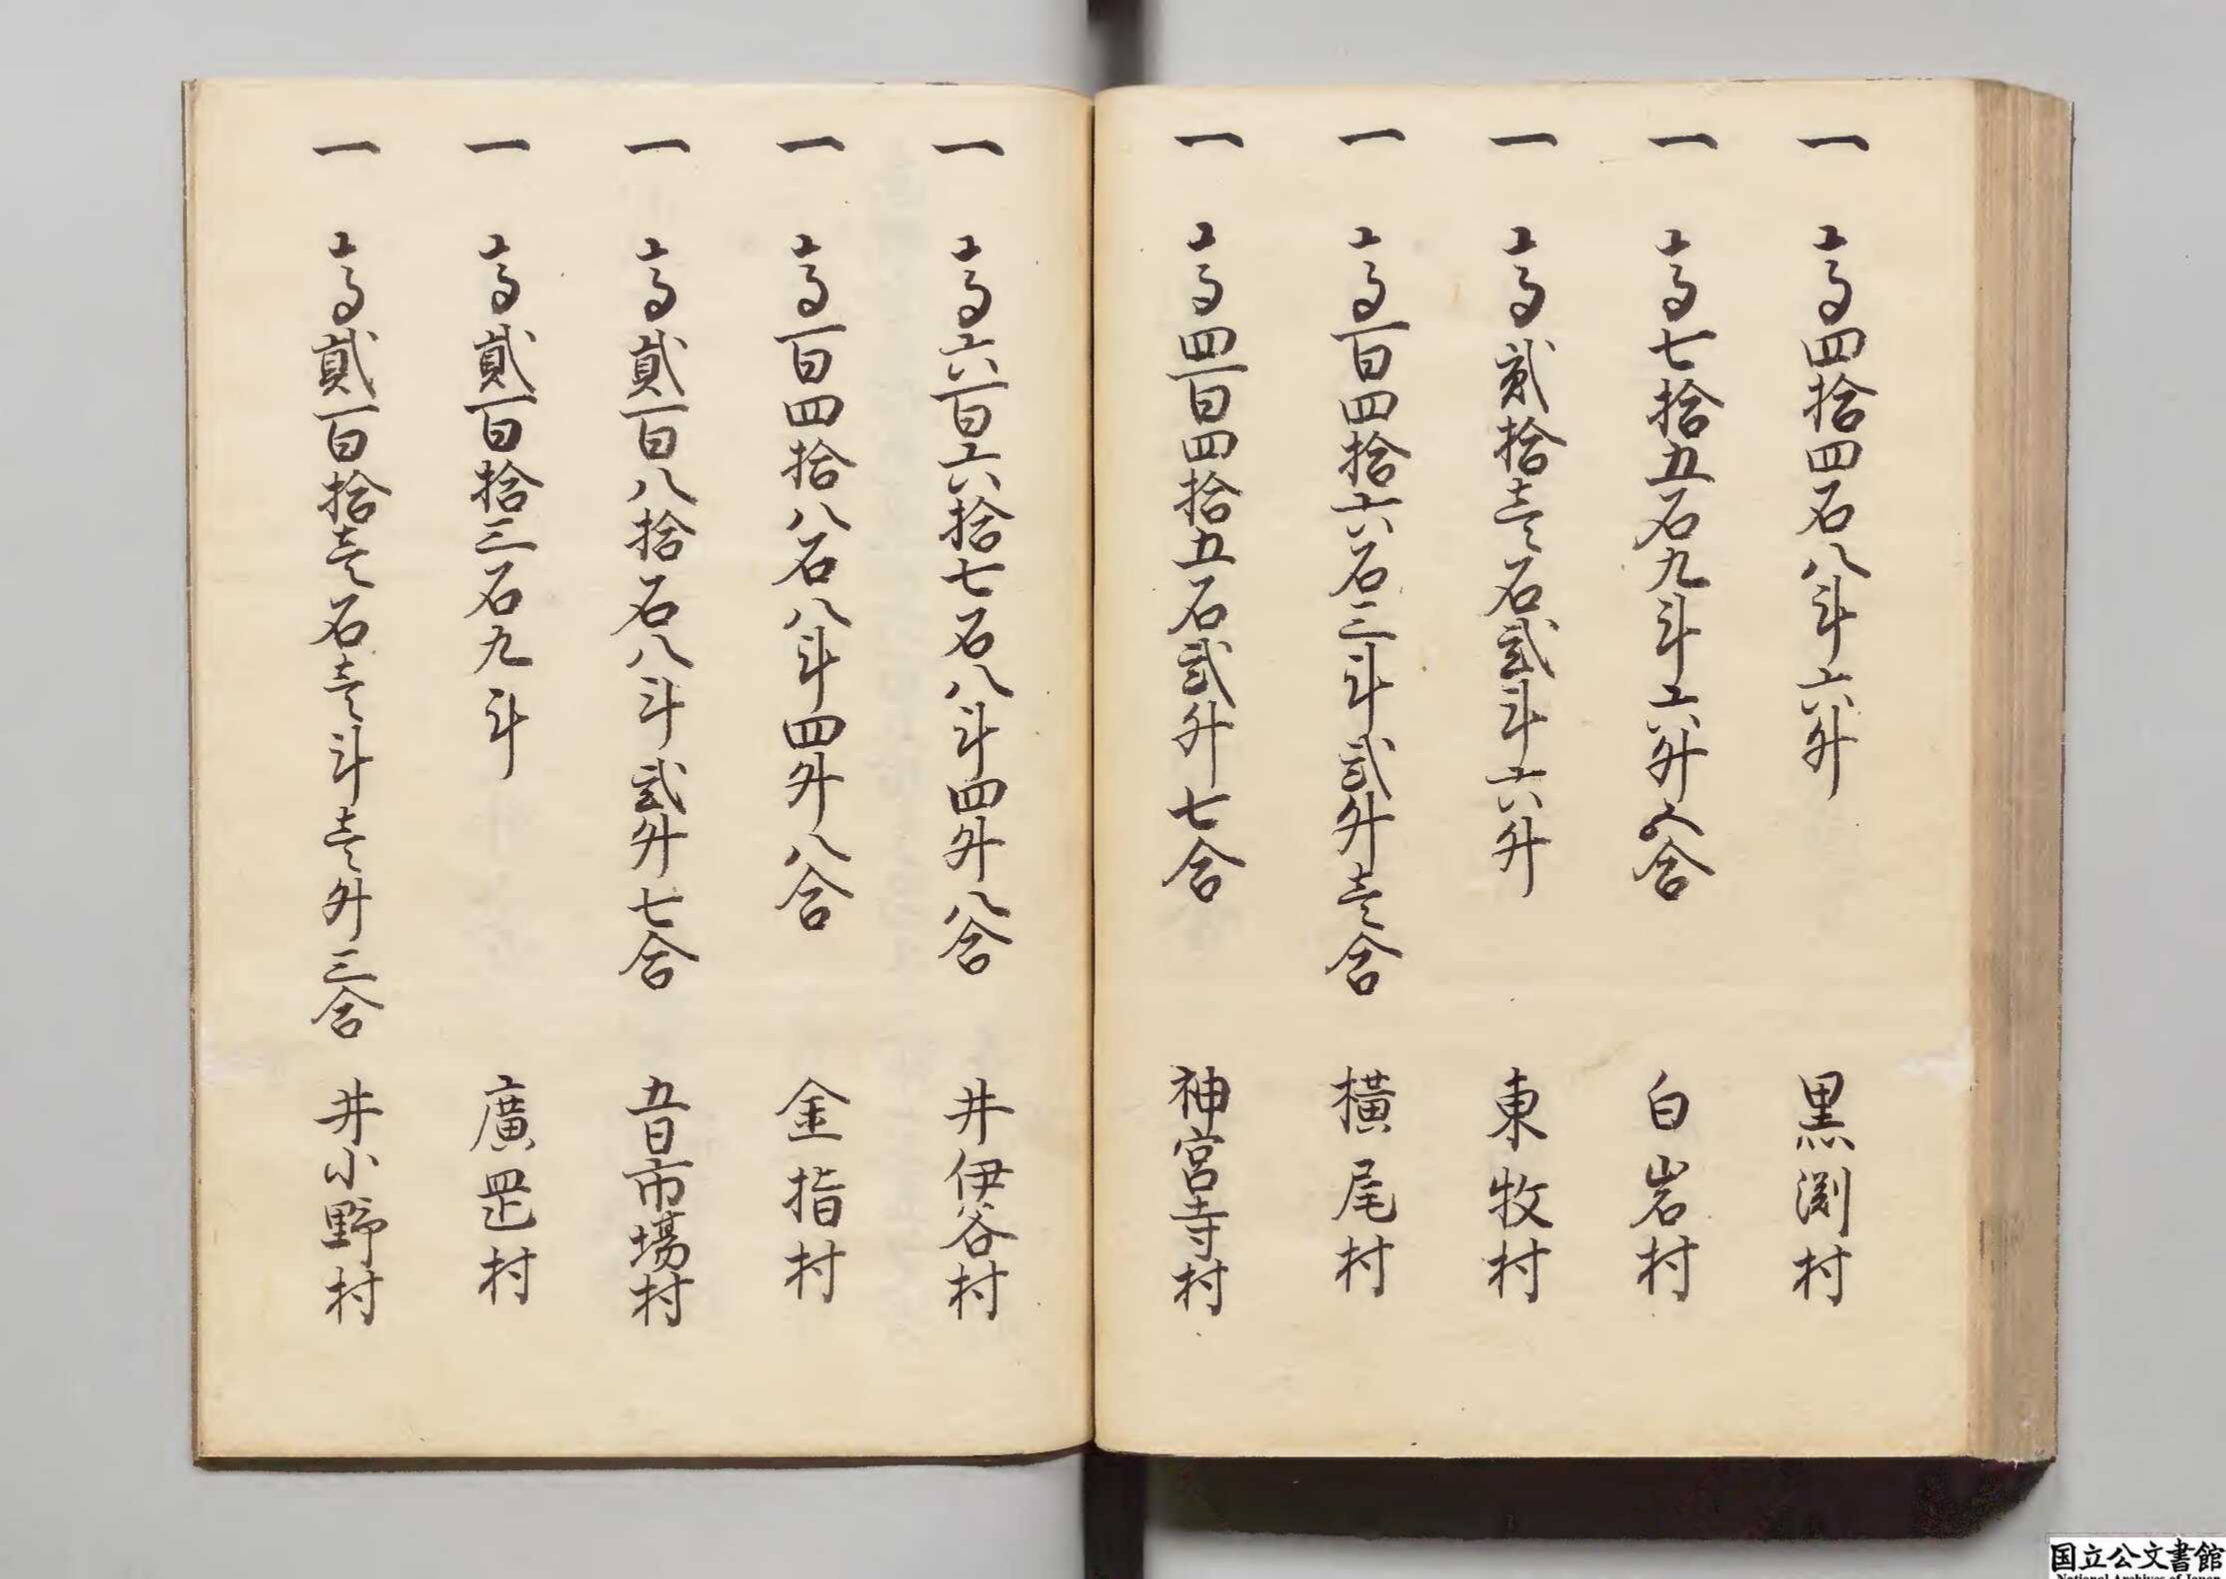 一 高四拾四石八斗六升 黒渕村
一 高七拾五石九斗六升五合 白岩村
一 高貳拾壱石貳斗六升 東牧村
一 高百四拾六石三斗貳升壱合 横尾村
一 高四百四拾五石貳升七合 神宮寺村
一 高六百六拾七石八斗四升八合 井伊谷村
一 高百四拾八石八斗四升八合 金指村
一 高貳百八拾石八斗貳升七合 五日市場村
一 高貳百拾三石九斗 廣罡村
一 高貳百拾壱石壱斗壱升三合 井小野村
国立公文書館
National Archives of Japan